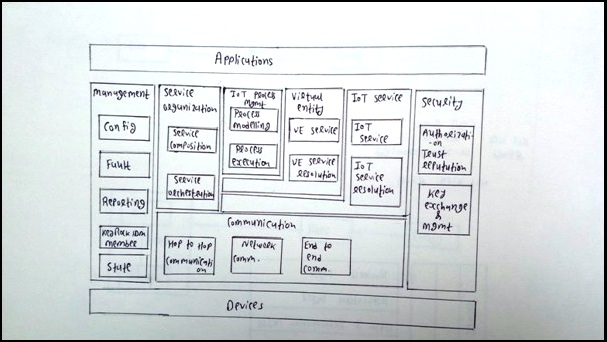 Applications
management
Config
Fault
Reporting
member
State
Service
organization
Service
composition
Service
orchestration
IoT Process
Mgmt
Process
modelling
Process
execution
Virtual
entity
VE service
VE service
resolution
IoT service
IoT
service
IoT
service
resolution
Security
Authorizati
-on
Trust
reputation
Key
exchange
&
mgmt
Communication
Hop to Hop
communicati
on
Network
comm.
End to
end
comm.
Devices